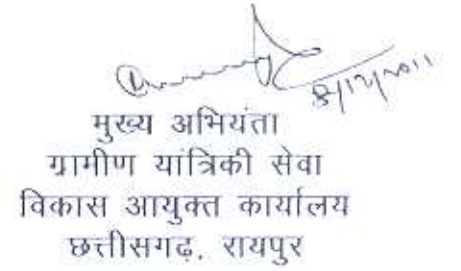 8/12/2011
मुख्य अभियंता
ग्रामीण यांत्रिकी सेवा
विकास आयुक्त कार्यालय
छत्तीसगढ़, रायपुर